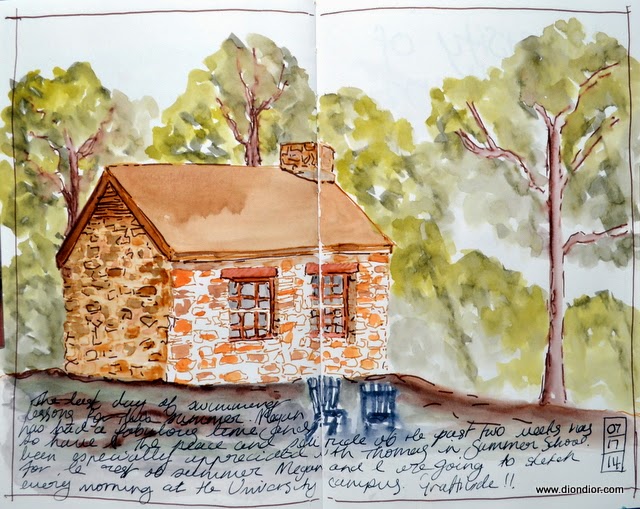 The last day of swimming
lessons for this summer. Megan
has had a fabulous time and
so have I. The peace and solitude of the past two weeks has
been especially appreciated with Thomas in Summer School.
For the rest of summer Megan and I are going to sketch
every morning at the University campus. Gratitude!!
07
17
14
www.diondior.com